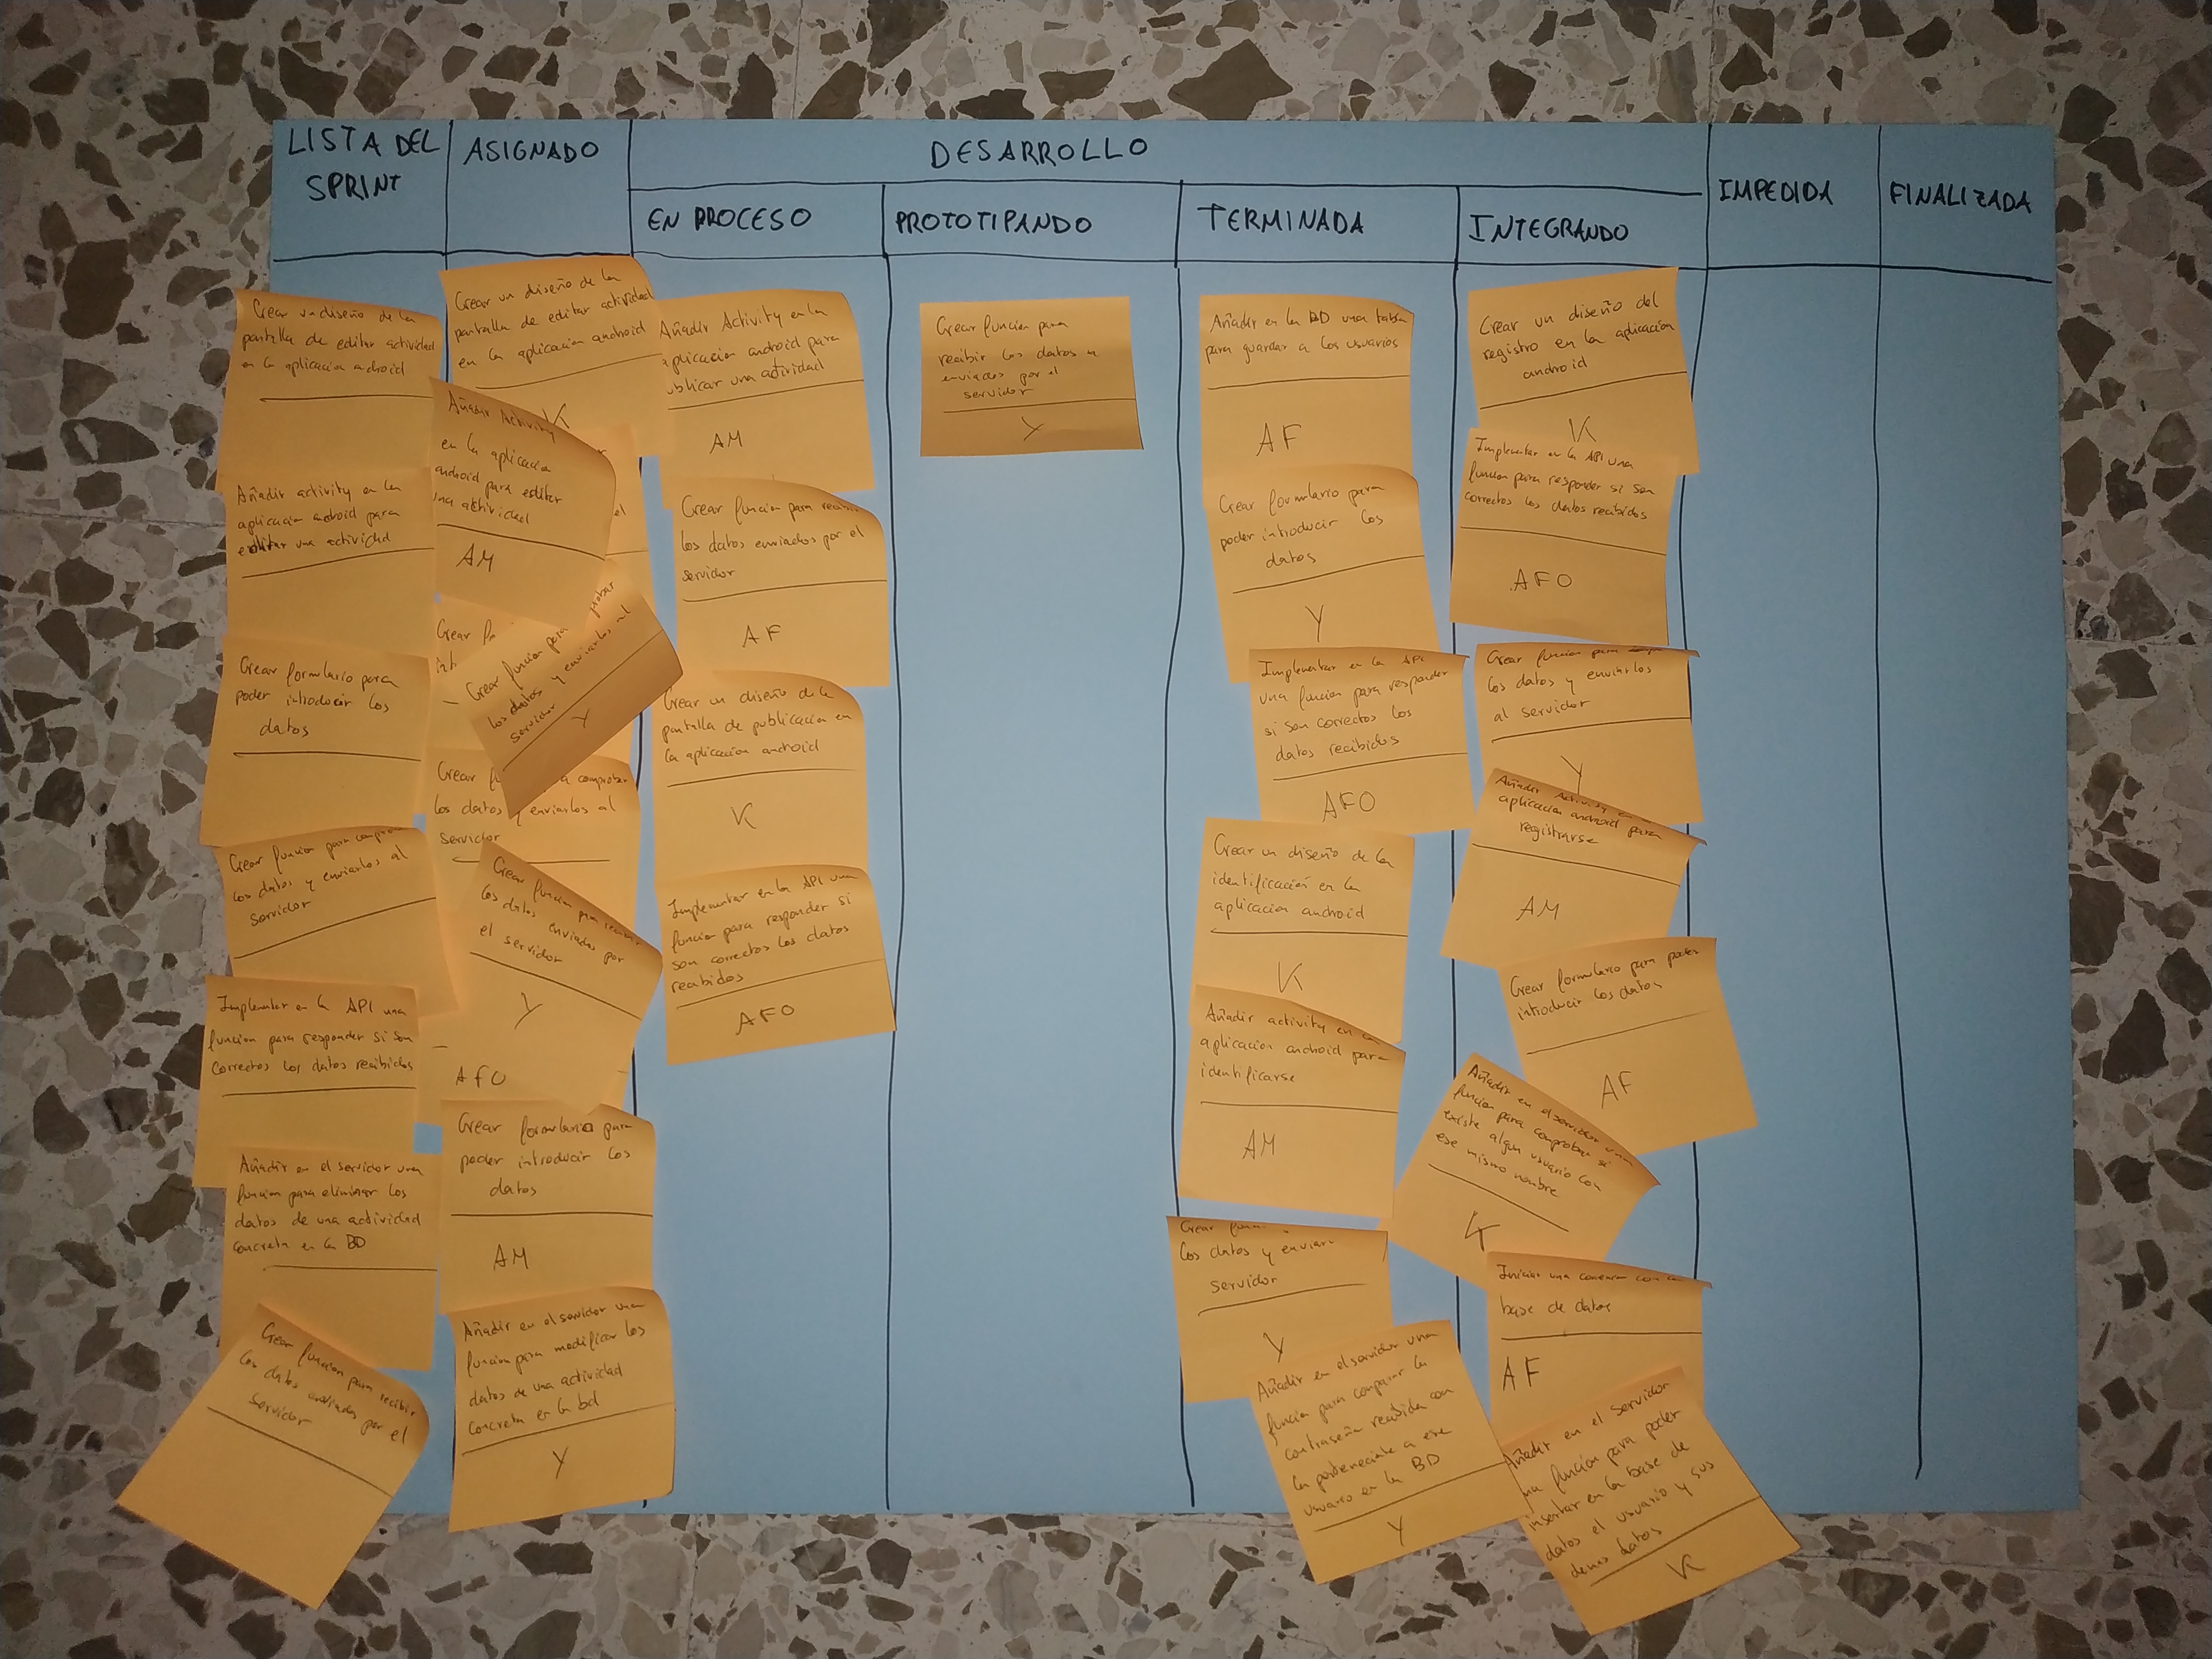 LISTA DEL
SPRINT
ASIGNADO
DESARROLLO
EN PROCESO
PROTOTIPANDO
TERMINADA
INTEGRANDO
IMPEDIDA
FINALIZADA
Crear un diseño de la
pantalla de editar actividad
en la aplicación android
Añadir activity en la
aplicación android para
editar una actividad
Crear formulario para
poder introducir los
datos
Crear función para
los datos y enviarlos al
servidor
Implementar en la API una
función para responder si son
correctos los datos recibidos
Añadir en el servidor una
función para eliminar los
datos de una actividad
concreta en la BD
Crear función para recibir
los datos enviados por el
servidor
Crear un diseño de la
pantalla de editar actividad
en la aplicación android
K
Añadir Activity
en la aplicación
android para editar
una actividad
AM
el
Crear
probar
Crear función para
los datos y enviarlos al
servidor
Y
Crear
a comprobar
los datos y enviarlos al
servidor
Crear función para recibir
los datos enviados por
el servidor
Y
AFO
Crear formulario para
poder introducir los
datos
AM
Añadir en el servidor una
función para modificar los
datos de una actividad
concreta en la bd
Y
Añadir Activity en la
aplicación android para
publicar una actividad
AM
Crear función para
los datos enviados por el
servidor
AF
Crear un diseño de la
pantalla de publicación en
la aplicación android
K
Implementar en la API una
función para responder si
son correctos los datos
recibidos
AFO
Crear función para
recibir los datos
enviados por el
servidor
Y
Añadir en la BD una tabla
para guardar a los usuarios
AF
Crear formulario para
poder introducir los
datos
Y
Implementar en la API
una función para responder
si son correctos los
datos recibidos
AFO
Crear un diseño de la
identificación en la
aplicación android
K
Añadir activity en la
aplicación android para
identificarse
AM
Crear
los datos y enviar
servidor
Y
Añadir en el servidor una
función para comparar la
contraseña recibida con
la perteneciente a ese
usuario en la BD
Y
Crear un diseño del
registro en la aplicación
android
K
Implementar en la API una
función para responder si son
correctos los datos recibidos
AFO
Crear función para
los datos y enviarlos
al servidor
Y
Añadir Activity
aplicación android para
registrarse
AM
Crear formulario para poder
introducir los datos
AF
Añadir en el servidor una
función para comprobar si
existe algun usuario con
ese mismo nombre
Iniciar una conexión con la
base de datos
AF
Añadir en el servidor
una función para poder
insertar en la base de
datos el usuario y sus
demas datos
K